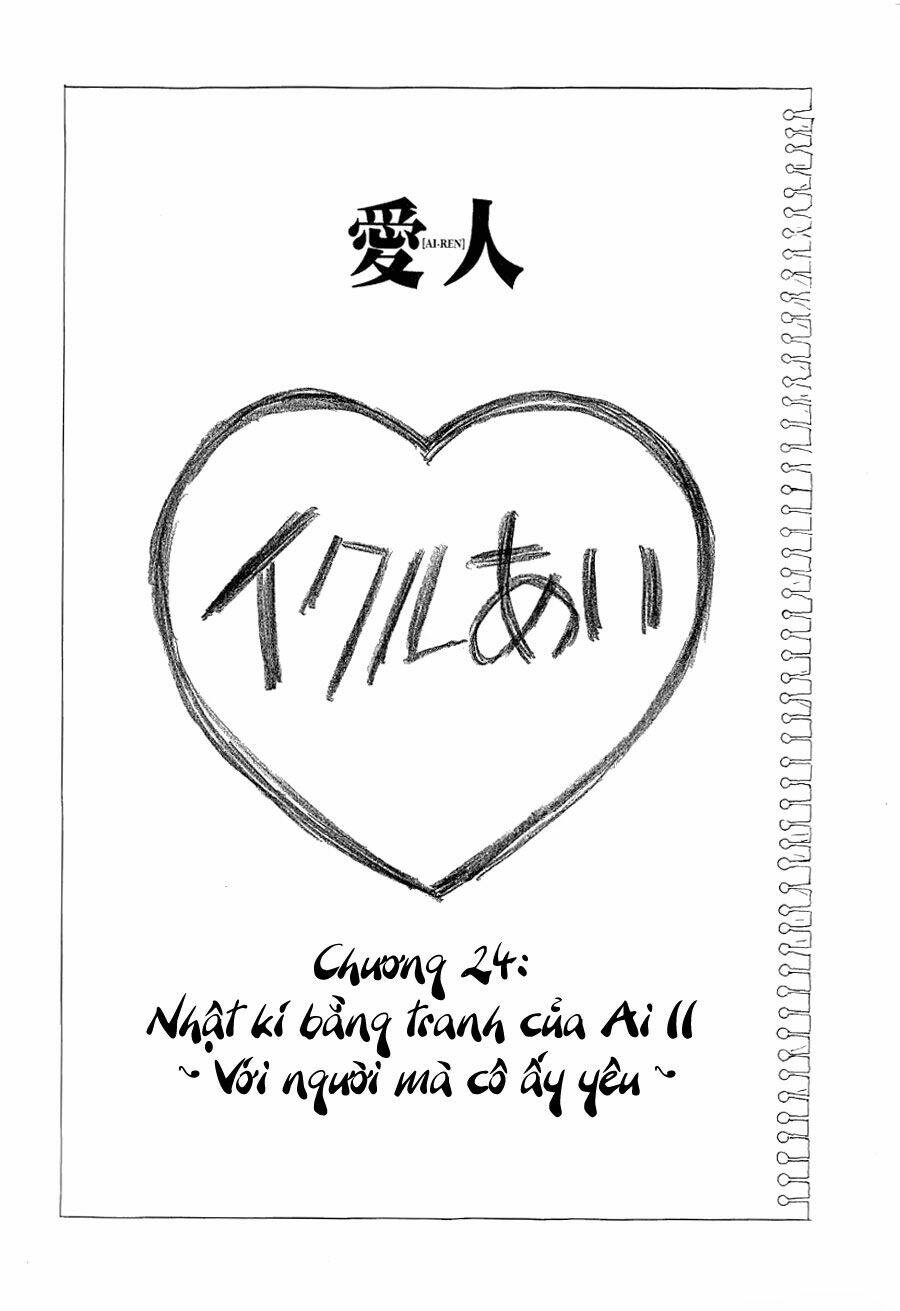 愛人
[AI-REN]
イクルあい
Chương 24:
Nhật kí bằng tranh của Ai II
~ Với người mà cô ấy yêu ~